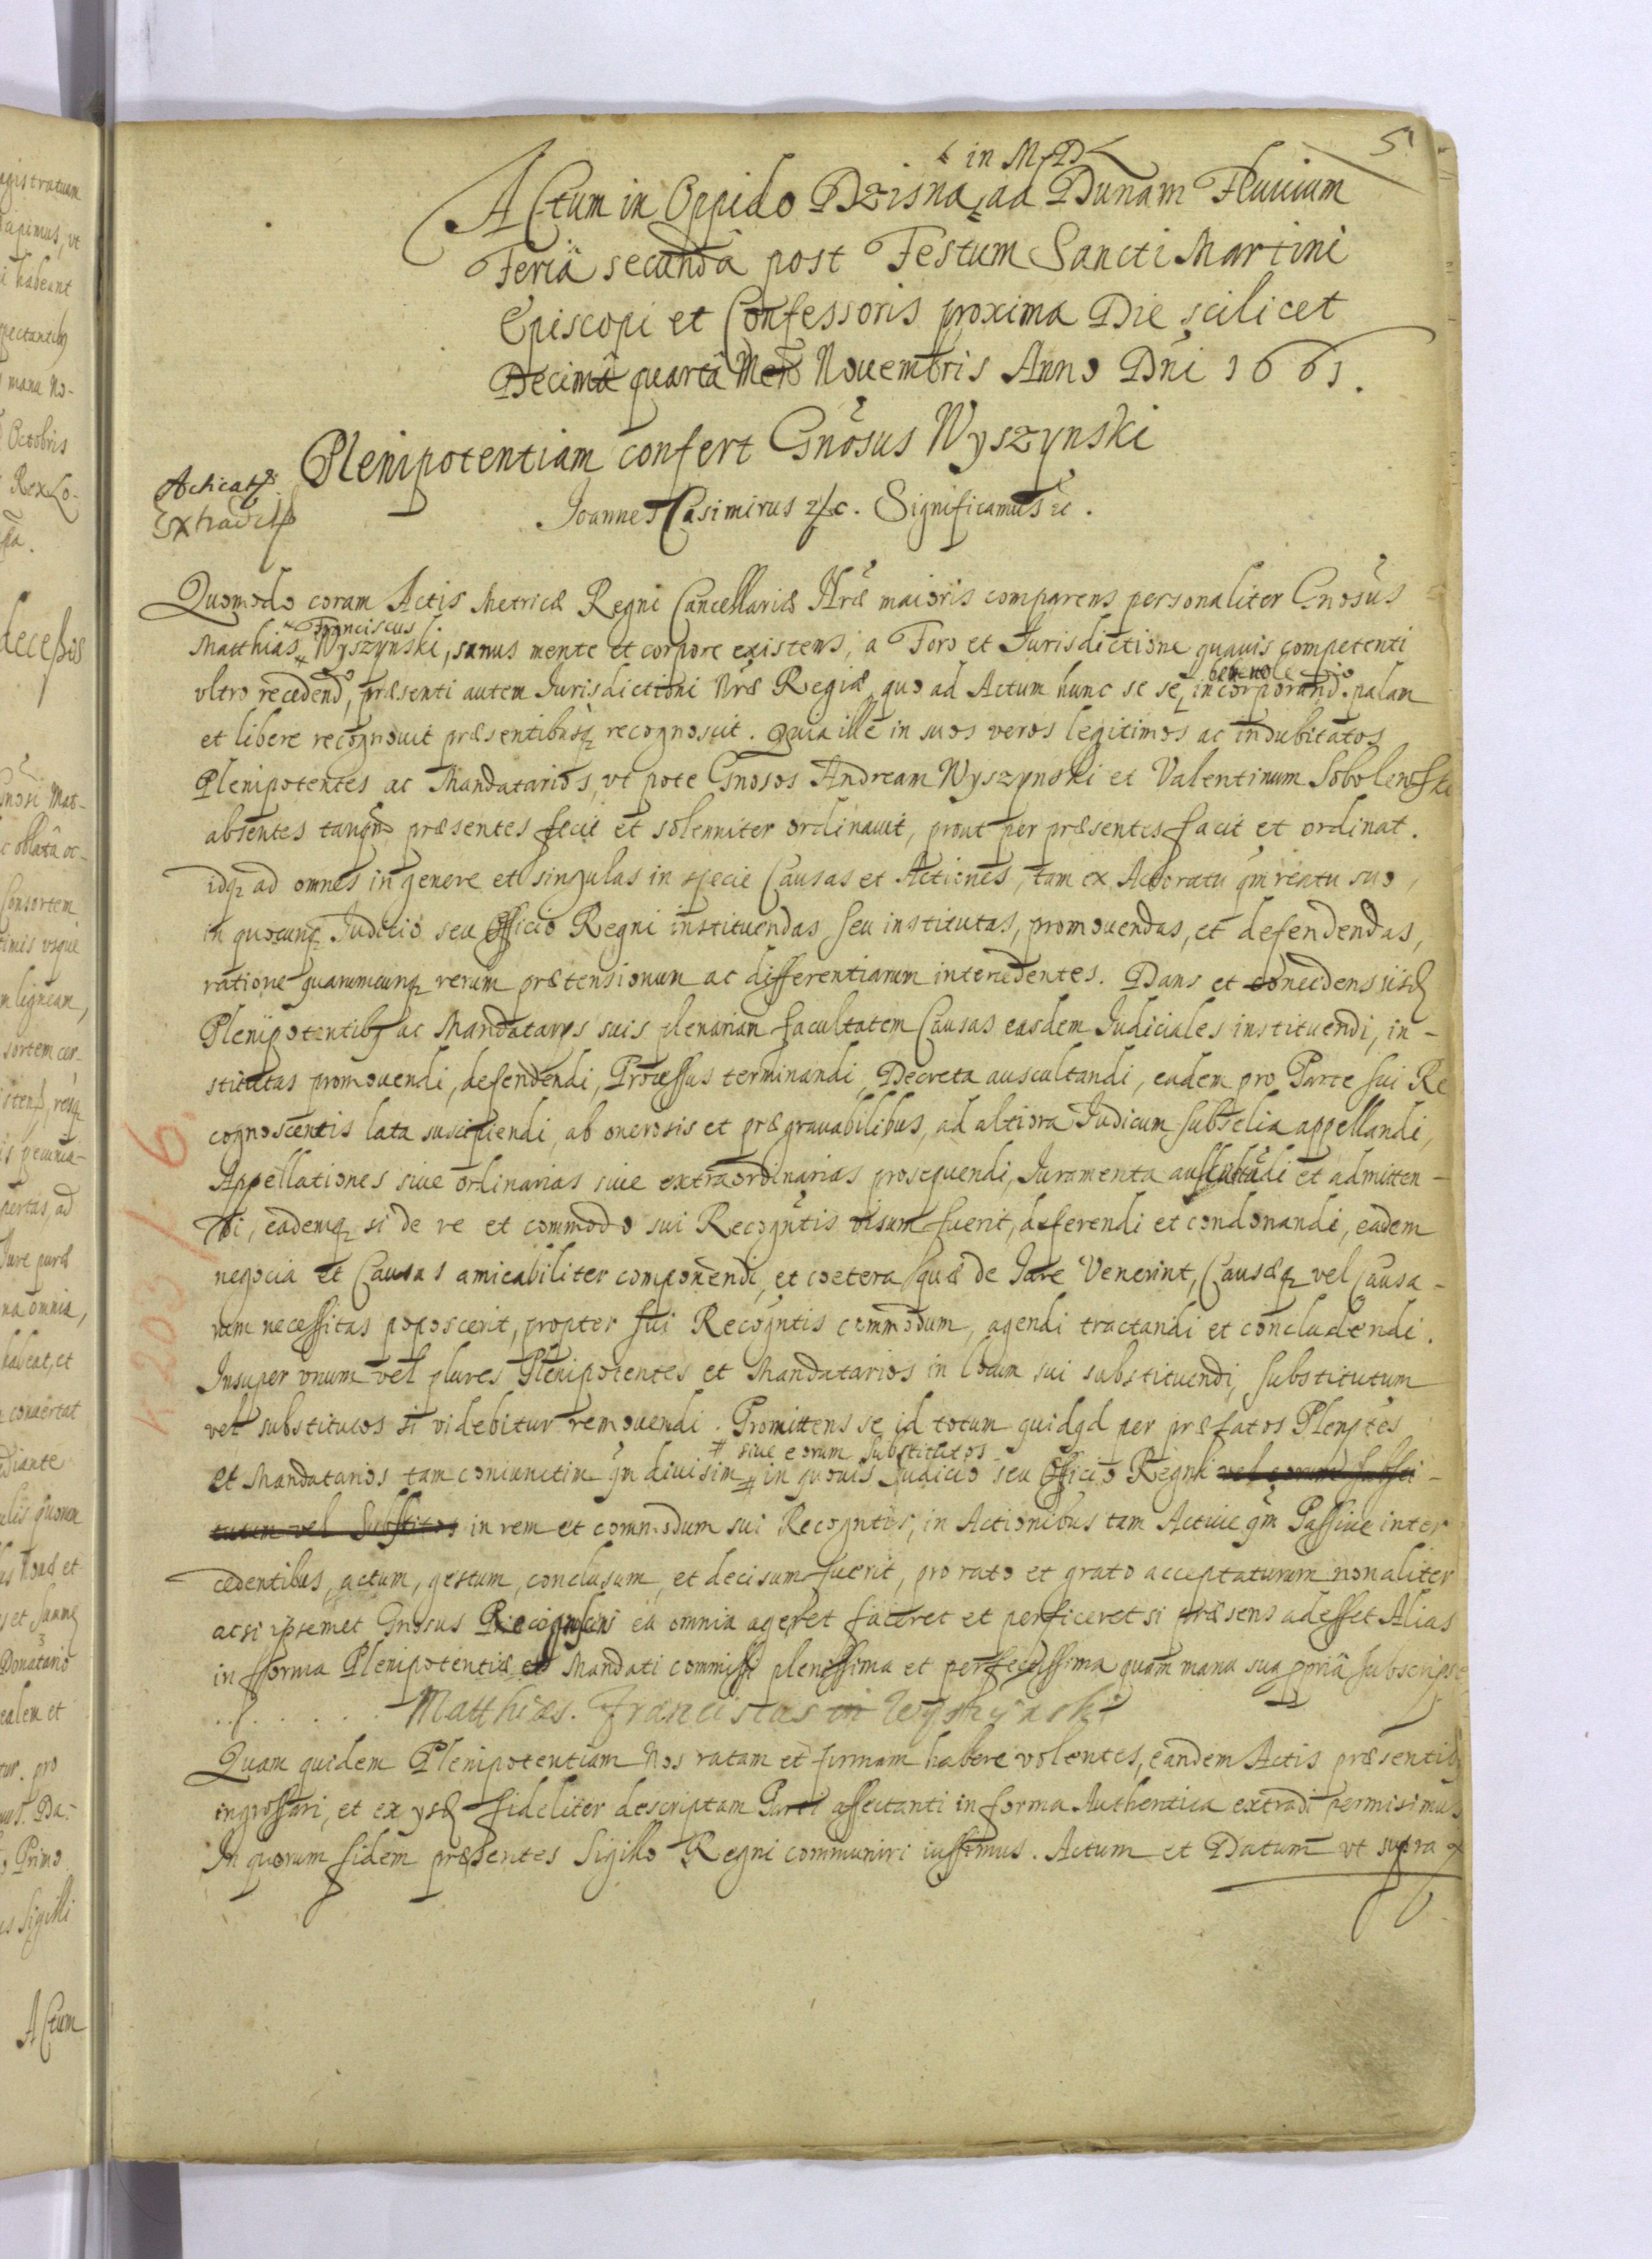 5
in M D L
Actum in Oppido Dzisna ad Dunam Fluuium
Feriâ secundâ post Festum Sancti Martini
Episcopi et Confessoris proxima Die scilicet
Decimâ quartâ Novembris Anno Dni 1661.
Plenipotentiam confert Gnosus Wyszynski
Joannes Casimirus &c. Significamus &c.
Quomodo coram Actis Metricæ Regni Cancellariæ Nræ maioris comparens personaliter Gnosus
Franciscus
Matthias Wyszynski, sanus mente et corpore existens, a Foro et Jurisdictione quauis competenti
beneuole
vltro recedendo, præsenti autem Jurisdictioni Nræ Regiæ, quo ad Actum hunc se se, incorporando palam
et libere recognouit præsentibusq recognoscit. Quia ille in suos veros legitimos ac indubitatos
Plenipotentes ac Mandatarios, vt pote Gnosos Andream Wyszynski et Valentinum Sobolewski
absentes tanqm præsentes fecit et solenniter ordinauit, prout per præsentes facit et ordinat.
idq ad omnes in genere et singulas in specie Causas et Actiones, tam ex Actoratu qm reatu suo,
in quocunq Juditio seu Officio Regni instituendas seu institutas, promouendas, et defendendas,
ratione quarumcunq rerum prætensionum ac differentiarum intercedentes. Dans et concedens iisd
Plenipotentibus ac Mandatarys suis plenariam facultatem Causas easdem Judiciales instituendi, in-
stitutas promouendi, defendendi, Processus terminandi, Decreta auscultandi, eadem pro Parte sui Re
cognoscentis lata suscipiendi, ab onerosis et prægrauabilibus, ad altiora Judicum subselia appellandi,
Appellationes siue ordinarias siue extraordinarias prosequendi, Juramenta auscultãdi et admitten-
di, eademq si de re et commodo sui Recogntis visum fuerit, deferendi et condonandi, eadem
negocia et Causas amicabiliter componendi, et coetera quæ de Jure Venerint, Causæq vel Causa-
rum necessitas poposcerit, propter sui Recogntis commodum, agendi tractandi et concludendi.
Insuper vnum vel plures Plenipotentes et Mandatarios in locum sui substituendi, substitutum
vel substitutos si videbitur remouendi. Promittens se id totum quidqd per præfatos Plenptes
# siue eorum substitutos
et Mandatarios tam coniunctim qm diuisim # in quouis Judicio seu Officio Regni vel eorum substi-
tutum vel Substitos in rem et commodum sui Recogntis, in Actionibus tam Actiue qm Passiue inter
cedentibus, actum, gestum, conclusum, et decisum fuerit, pro rato et grato acceptaturum non aliter
ac si ipsemet Gnosus ea omnia ageret faceret et perficeret si præsens adesset Alias
in forma Plenipotentiæ et Mandati commissi plenissima et perfectissima quam manu sua ppriâ subscripsit
Matthias Franciscus Wyszynski
Quam quidem Plenipotentiam Nos ratam et firmam habere volentes, eandem Actis præsentib
ingrossari, et ex ysd fideliter descriptam Parti affectanti in forma Authentica extradi permisimus
In quorum fidem præsentes Sigillo Regni communiri iussimus. Actum et Datum vt supra